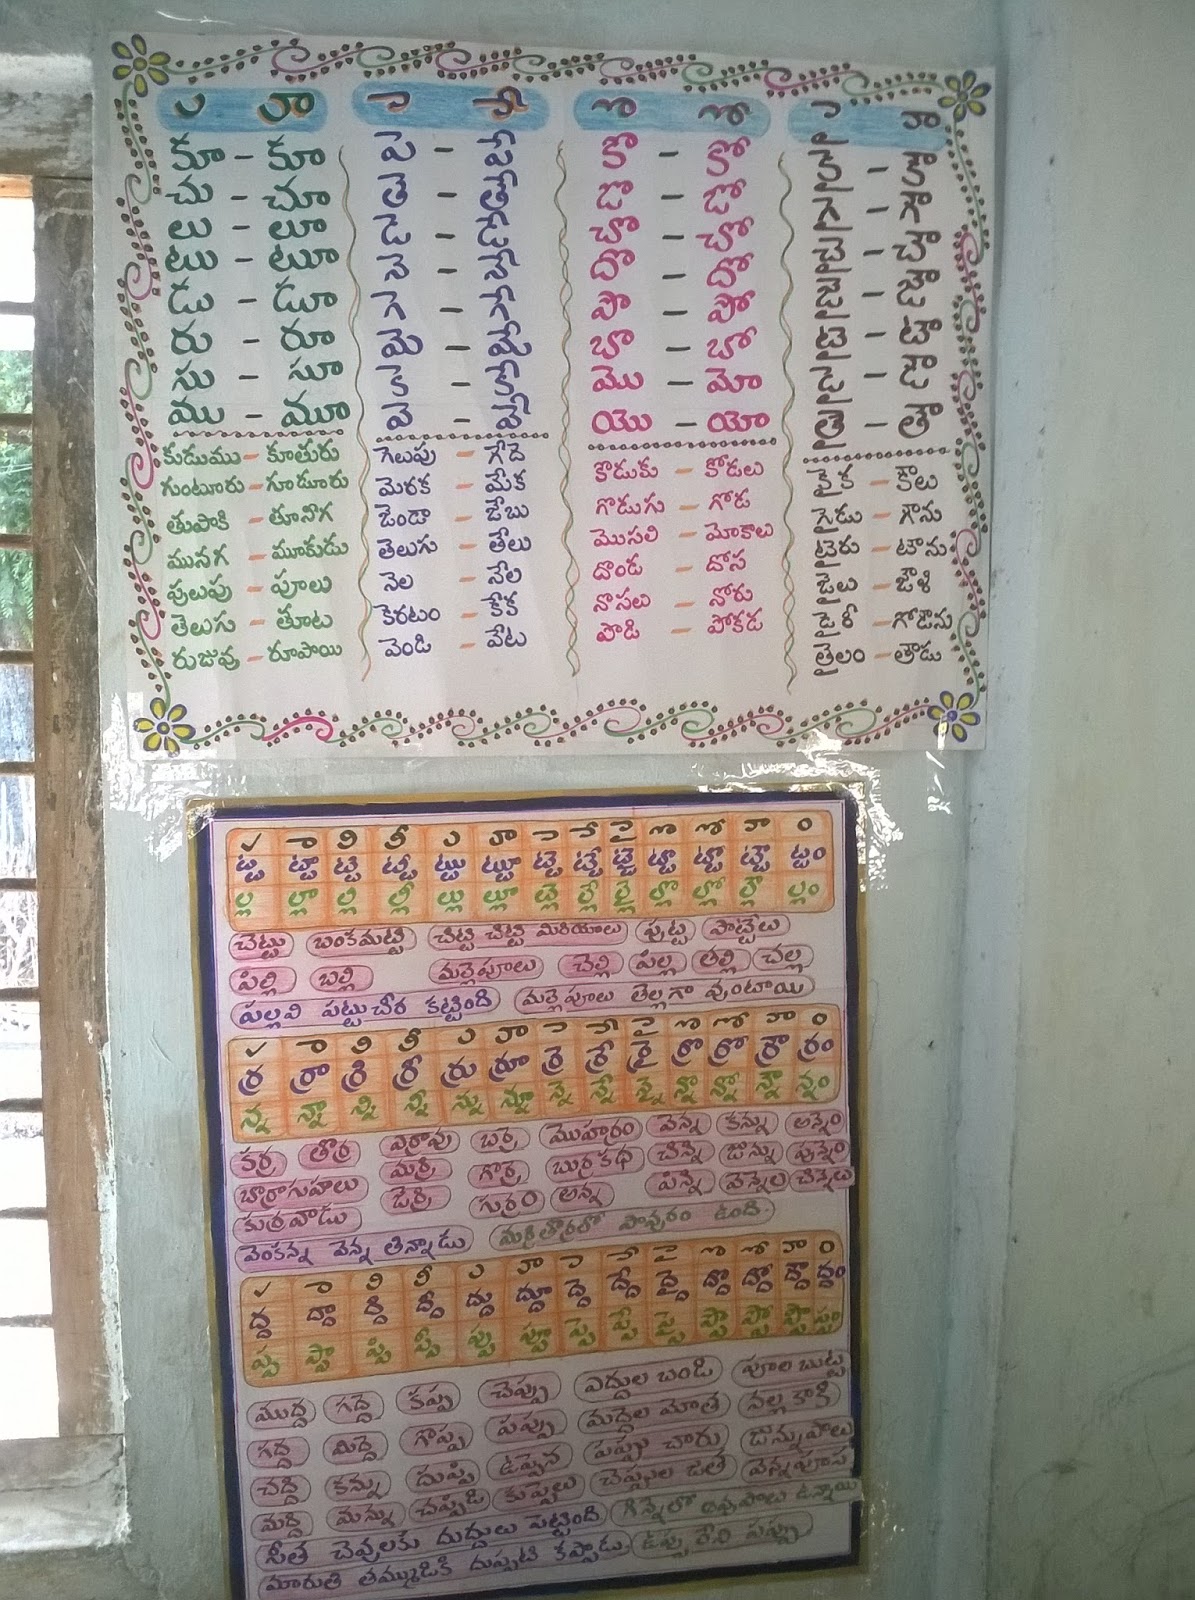 ు ూ
కు - కూ
చు - చూ
లు - లూ
టు - టూ
డు - డూ
రు - రూ
సు - సూ
ము - మూ
కుడుము - కూతురు
గుంటూరు - గూడూరు
తుపాకి - తూనీగ
మునగ - మూకుడు
పులుపు - పూలు
తెలుగు - తూట
రుజువు - రూపాయి
ె ే
జె - జే
తె - తే
డె - డే
నె - నే
గె - గే
మె - మే
కె - కే
వె - వే
గెలుపు - గేదె
మెరక - మేక
జెండా - జేబు
తెలుగు - తేలు
నెల - నేల
కెరటం - కేక
వెండి - వేట
ొ ో
కొ - కో
జొ - జో
చొ - చో
దొ - దో
పొ - పో
బొ - బో
మొ - మో
యొ - యో
కొడుకు - కోడలు
గొడుగు - గోడ
మొసలి - మోకాలు
దొండ - దోస
నొసలు - నోరు
పొడి - పోకడ
ై ౌ
కై - కౌ
గై - గౌ
చై - చౌ
జై - జౌ
టై - టౌ
డై - డౌ
తై - తౌ
కైక - కౌలు
గైడు - గౌను
టైరు - టౌను
జైలు - జౌళి
డైరీ - గోడౌను
తైలం - తౌడు
 ా ి ీ ు ూ ె ే ై ొ ో ౌ ం
ట్ట ట్టా ట్టి ట్టీ ట్టు ట్టూ ట్టె ట్టే ట్టై ట్టొ ట్టో ట్టౌ ట్టం
ల్ల ల్లా ల్లి ల్లీ ల్లు ల్లూ ల్లె ల్లే ల్లై ల్లొ ల్లో ల్లౌ ల్లం
చెట్టు బంకమట్టి చిట్టి చిట్టి మిరియాలు పుట్ట పొట్టేలు
పిల్లి బల్లి మల్లెపూలు చెల్లి పిల్ల తల్లి చల్ల
పల్లవి పట్టుచీర కట్టింది మల్లెపూలు తెల్లగా వుంటాయి
 ా ి ీ ు ూ ె ే ై ొ ో ౌ ం
ర్ర ర్రా ర్రి ర్రీ ర్రు ర్రూ ర్రె ర్రే ర్రై ర్రొ ర్రో ర్రౌ ర్రం
న్న న్నా న్ని న్నీ న్ను న్నూ న్నె న్నే న్నై న్నొ న్నో న్నౌ న్నం
కర్ర తొర్ర ఎర్రావు బర్రె మొహర్రం వెన్న కన్ను అన్నం
బొర్రాగుహలు మర్రి గొర్రె బుర్రకథ చిన్ని జున్ను
కుర్రవాడు జెర్రి గుర్రం అన్న పిన్ని వెన్నెల
వెంకన్న వెన్న తిన్నాడు మర్రితొర్రలో పావురం ఉంది.
 ా ి ీ ు ూ ె ే ై ొ ో ౌ ం
ద్ద ద్దా ద్ది ద్దీ ద్దు ద్దూ ద్దె ద్దే ద్దై ద్దొ ద్దో ద్దౌ ద్దం
ప్ప ప్పా ప్పి ప్పీ ప్పు ప్పూ ప్పె ప్పే ప్పై ప్పొ ప్పో ప్పౌ ప్పం
ముద్ద గద్దె కప్ప చెప్పు ఎద్దుల బండి పూల బుట్ట
గద్ద మిద్దె గొప్ప పప్పు మద్దెల మోత నల్ల కాకి
చద్ది కన్ను దుప్పి ఉప్పెన పప్పు చారు జున్నుపాలు
మద్ది మన్ను చప్పిడి కుప్పలు చెప్పుల జత వెన్నపూస
సీత చెవులకు దుద్దులు పెట్టింది గిన్నెలో అప్పాలు ఉన్నాయి
మారుతి తమ్ముడికి దుప్పటి కప్పాడు. ఉప్పు లేని పప్పు